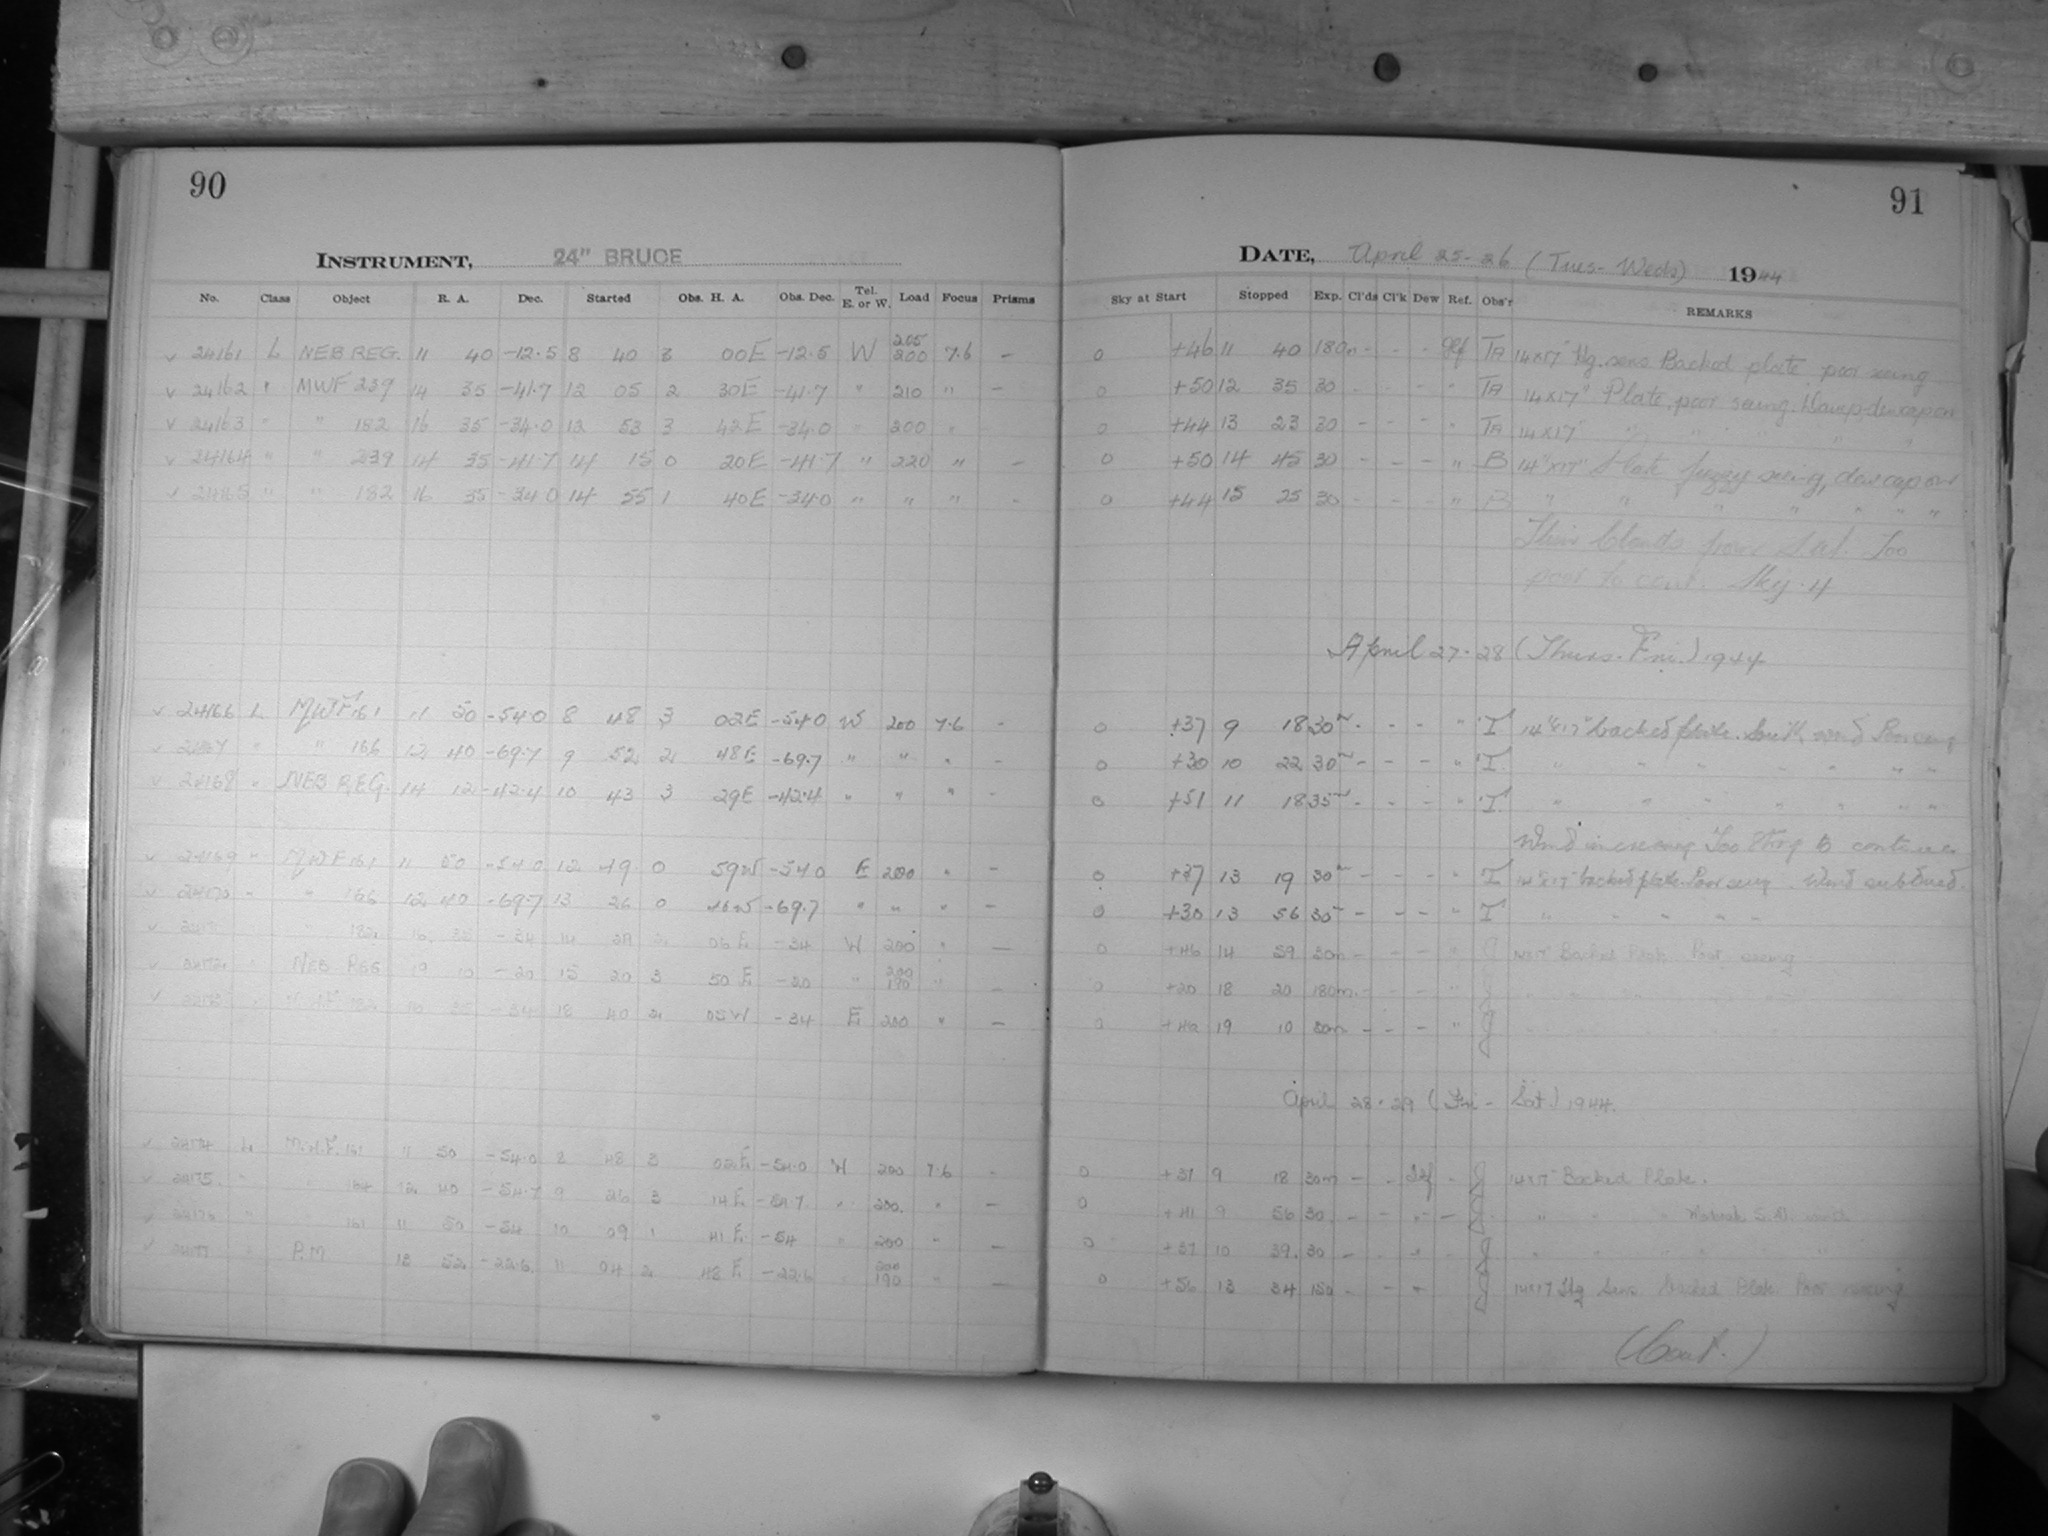 90
INSTRUMENT, 24" BRUCE
No. Class Object R. A. Dec. Started Obs. H. A. Obs. Dec. Tel. E. or W. Load Focus Prisms
v 24161 L NEB REG. 11 40 -12.5 8 40 3 00E -12.5 W 205 200 7.6 -
v 24162 " MWF 239 14 35 -41.7 12 05 2 30E -41.7 " 210 " -
v 24163 " " 182 16 35 -34.0 12 53 3 42E -34.0 " 200 "
v 24164 " " 239 14 35 -41.7 14 15 0 20E -41.7 " 220 " -
v 24165 " " 182 16 35 -34.0 14 55 1 40E -34.0 " " " -
v 24166 L MWF 161 11 50 -54.0 8 48 3 02E -54.0 W 200 7.6 -
v 24167 " " 166 12 40 -69.7 9 52 2 48E -69.7 " " " -
v 24168 " NEB REG. 14 12 -42.4 10 43 3 29E -42.4 " " " -
v 24169 " MWF 161 11 50 -54.0 12 49 0 59W -54.0 E 200 " -
v 24170 " " 166 12 40 -69.7 13 26 0 46W -69.7 " " " -
v 24171 " 182 16 35 -34 14 29 2 06E -34 W 200 " -
v 24172 " NEB REG 19 10 -20 15 20 3 50E -20 " 200 190 " -
v 24173 " 182 16 35 -34 18 40 2 05W -34 E 200 " -
v 24174 L M.W.F. 161 11 50 -54.0 8 48 3 02E -54.0 W 200 7.6 -
v 24175 " 12 40 9 26 3 14E " 200 " -
v 24176 " " 161 11 50 -54 10 09 1 41E -54 " 200 " -
v 24177 " P.M 13 52 -22.6 11 04 2 48E -22.6 " 200 190 " -
91
DATE, April 25-26 (Tues-Weds) 1944
Sky at Start Stopped Exp. Cl'ds Cl'k Dew Ref. Obs'r REMARKS
0 +46 11 40 180m - - - TA 14x17" Hg. sens Backed plate poor seeing
0 +50 12 35 30 - - - " TA 14x17" Plate, poor seeing.
0 +44 13 23 30 - - - " TA 14x17" " " " " "
0 +50 14 45 30 - - - " B 14"x17" Plate fuzzy seeing, dewcap on
0 +44 15 25 30 - - - " B " " " " " " "
Thin Clouds from S.W. Too
poor to cont. Sky. 4
April 27-28 (Thurs-Fri.) 1944
0 +37 9 18 30m - - - " T 14"x17" backed plate. South wind Poor seeing
0 +30 10 22 30m - - - " T " " " " " " "
0 +51 11 18 35m - - - " T " " " " " " "
Wind increasing Too strong to continue
0 +37 13 19 30m - - - " T 14"x17" backed plate. Poor seeing. Wind subdued.
0 +30 13 56 30m - - - " T " " " " "
0 +46 14 59 30m - - - " J 14x17" Backed Plate Poor seeing
0 +20 18 20 180m. - - - " J
0 19 10 30m - - - " J
April 28-29 (Fri - Sat.) 1944.
0 +37 9 18 30m - - J 14x17" Backed Plate.
0 +41 9 56 30 - - " - J " " "
0 +37 10 39 30 - - " J " " " "
0 +56 13 34 150 - - " J 14x17 Hg Sens backed Plate Poor seeing
(Cont.)